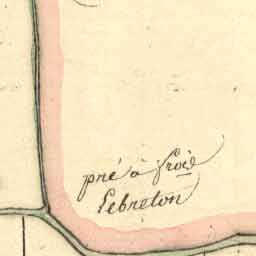 pré à Froid
Lebreton